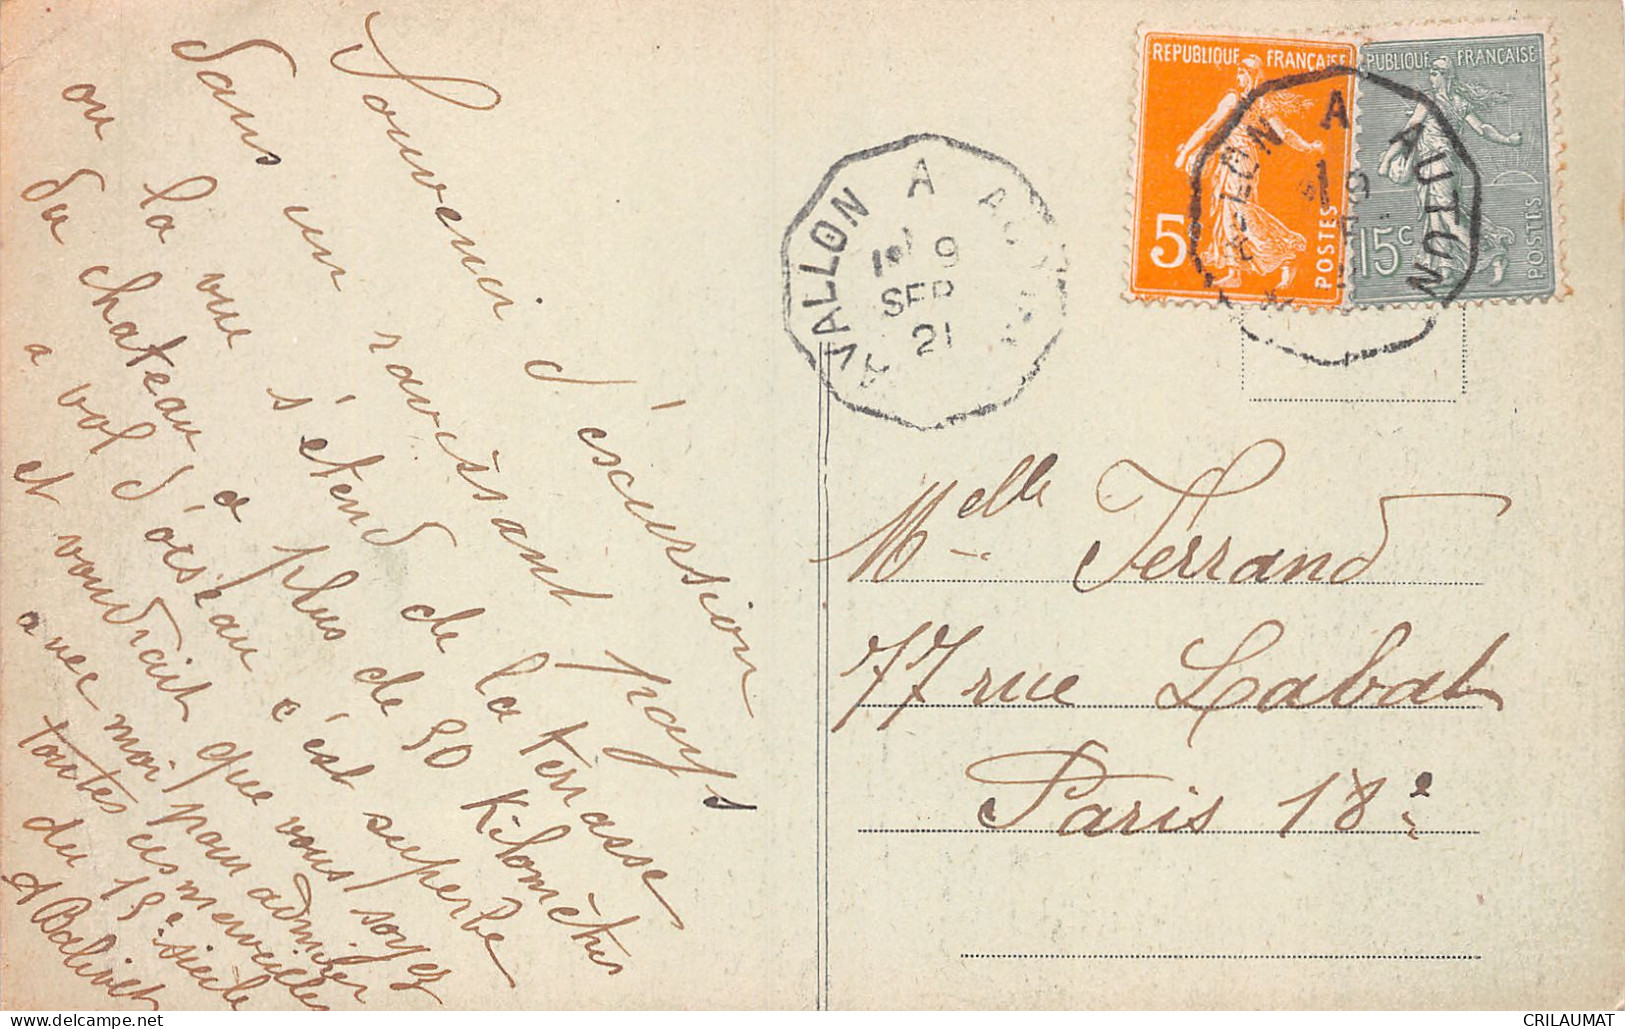 Souvenir d'escursion
dans un ravissant pays
ou la vue s'étend de la terrasse
du chateau a plus de 90 Kilomètres
a vol d'oiseau c'est superbe
et voudrait que vous soyez
avec moi pour admirer
toutes ces merveilles
du 19e siècle
A Balivet
AVALLON A
1er 9
SEP
21
REPUBLIQUE FRANÇAISE
5
POSTES
PUBLIQUE FRANÇAISE
15c
POSTES
LON A AUTUN
9
21
Melle Ferrand
77 rue Labat
Paris 18e
CRILAUMAT